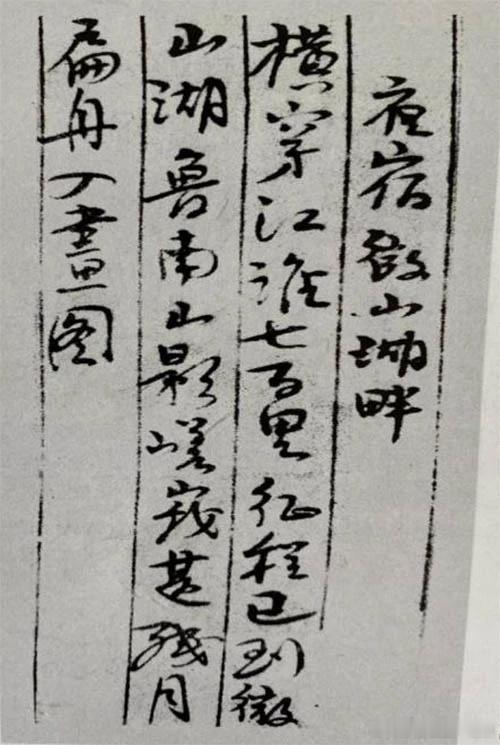 夜宿微山湖畔
横穿江淮七百里征程已到微
山湖鲁南山影嵯峨甚残月
扁舟入畫图